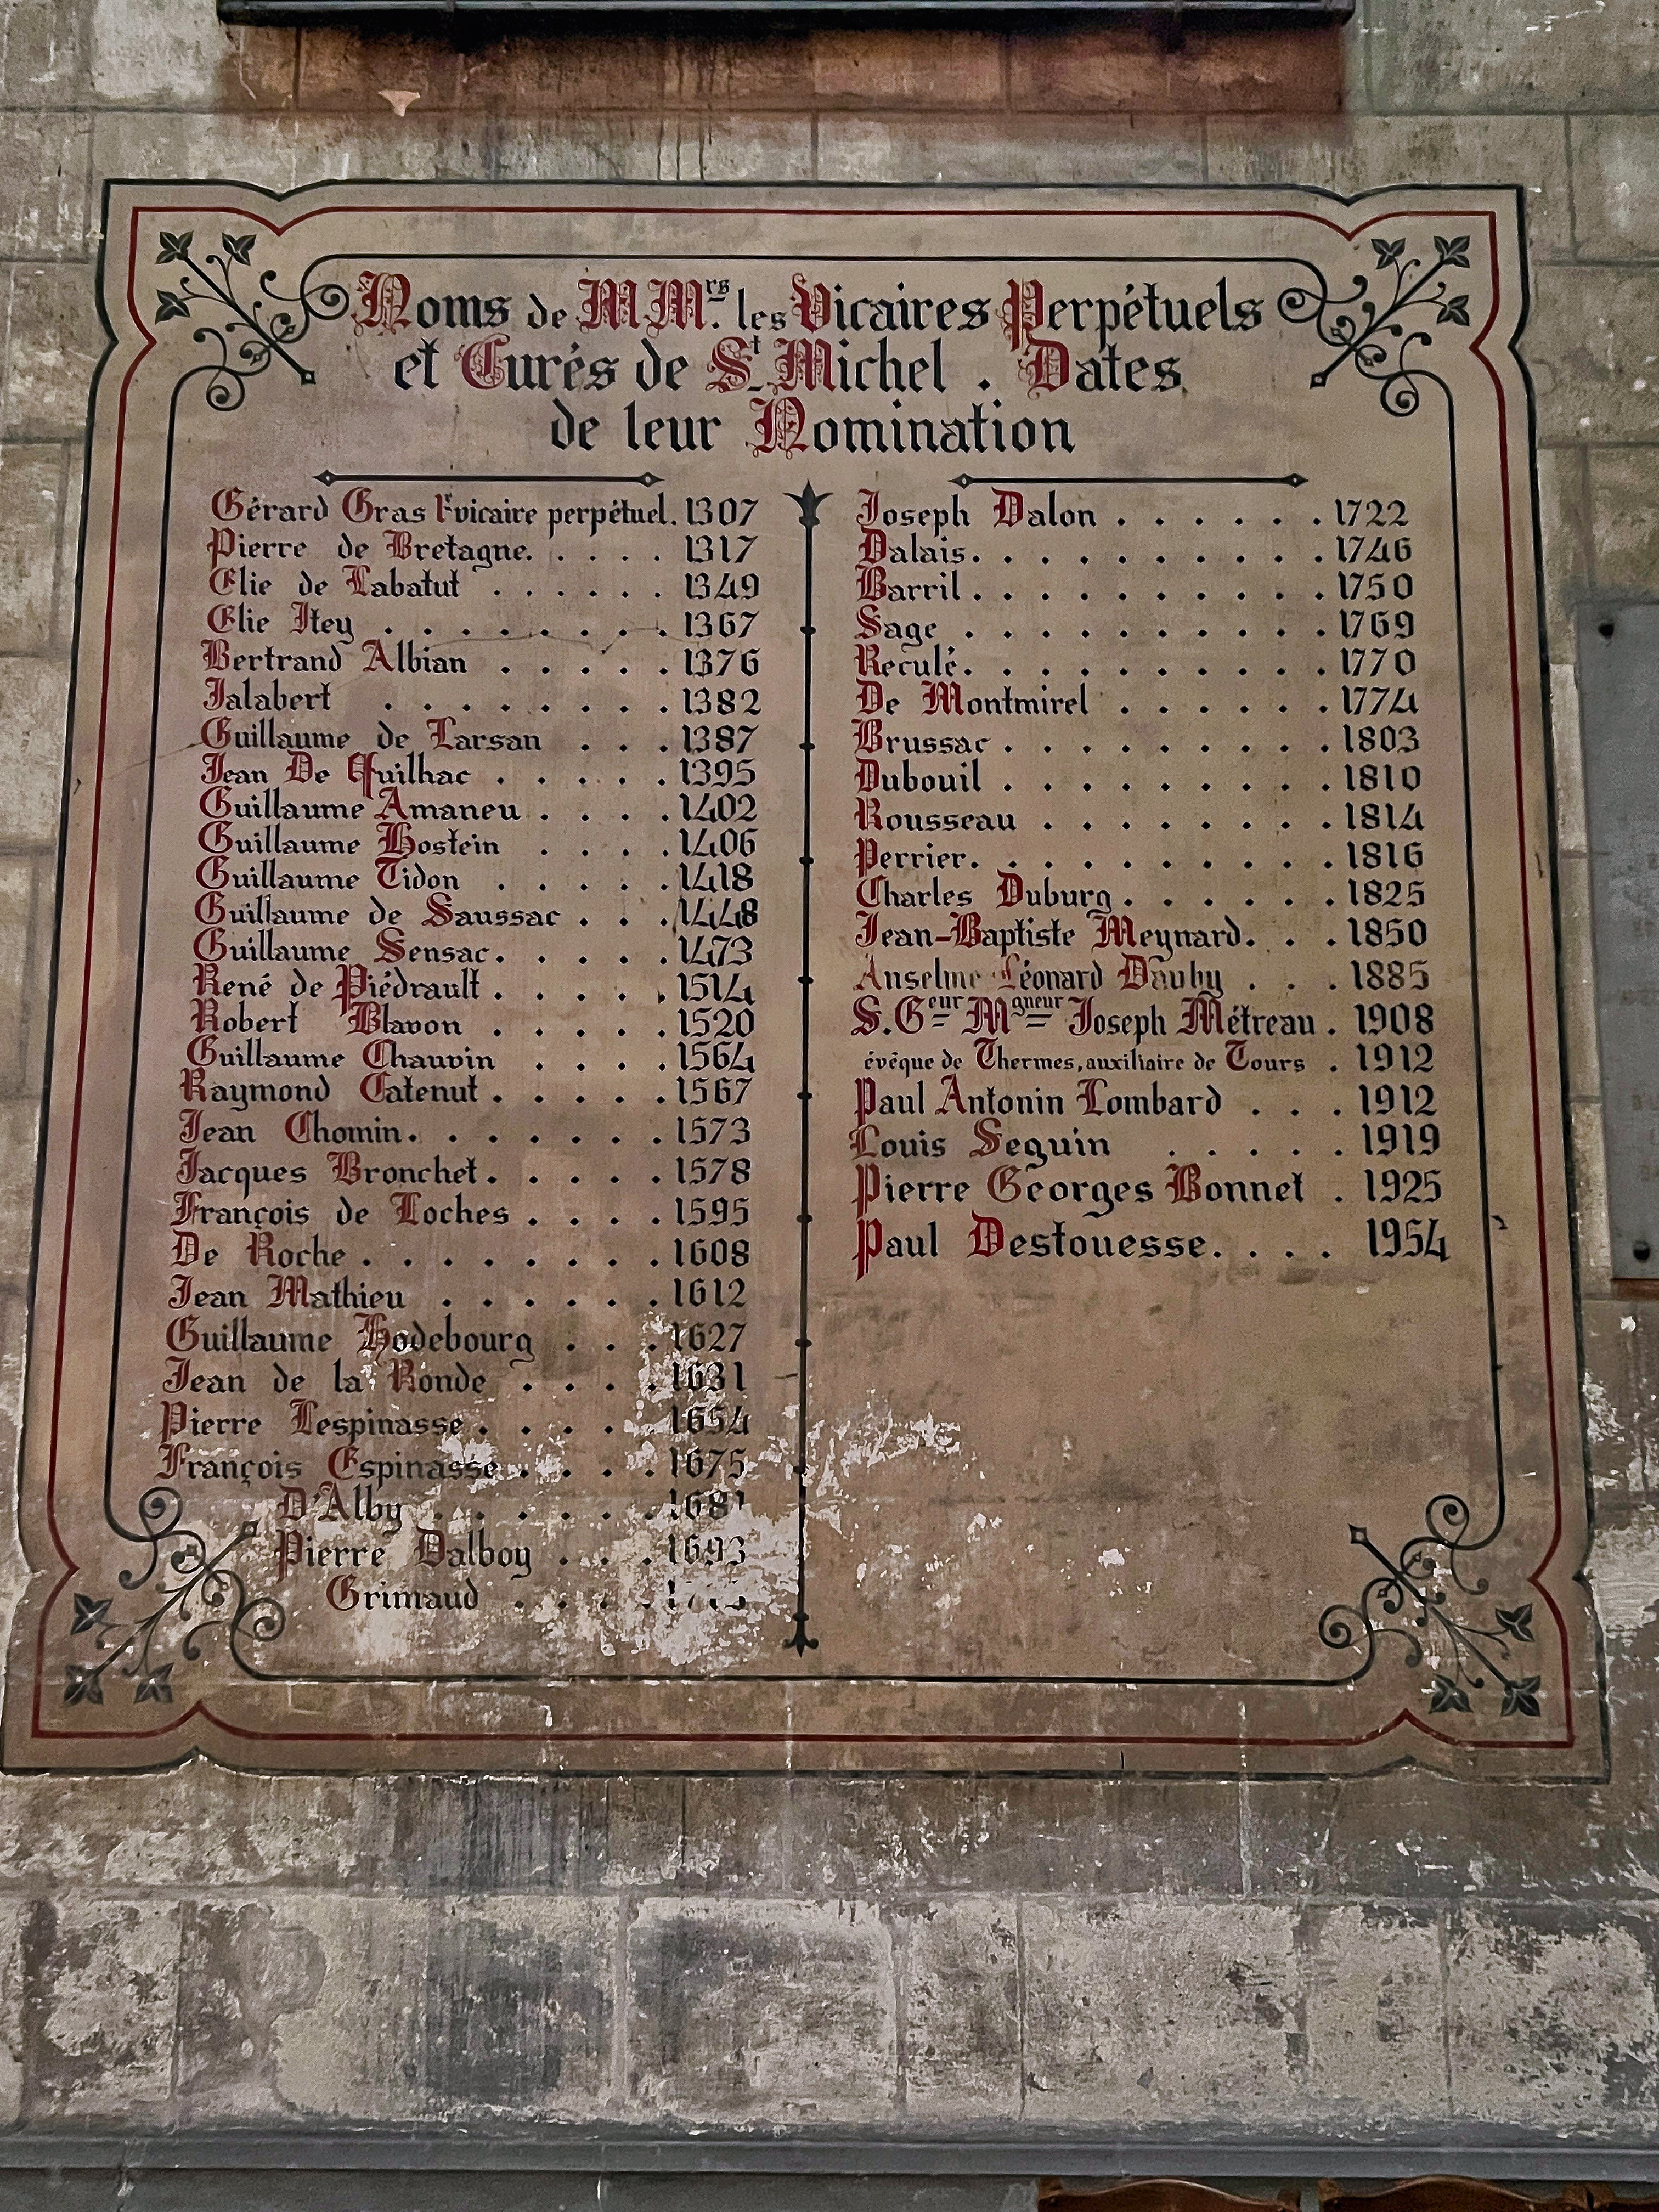 Noms de M.Mrs. les Vicaires Perpétuels
et Curés de St. Michel . Dates
de leur Nomination
Gérard Gras 1er vicaire perpétuel. 1307
Pierre de Bretagne. . . . . 1317
Elie de Labatut . . . . . . 1349
Elie Itey . . . . . . . . 1367
Bertrand Albian . . . . . 1376
Jalabert . . . . . . . . 1382
Guillaume de Larsan . . . 1387
Jean De Quilhac . . . . . 1395
Guillaume Amaneu . . . . 1402
Guillaume Hostein . . . . 1406
Guillaume Tidon . . . . . 1418
Guillaume de Saussac . . . 1448
Guillaume Sensac. . . . . 1473
René de Piédrault . . . . . 1514
Robert Blavon . . . . . 1520
Guillaume Chauvin . . . . 1564
Raymond Catenut . . . . . 1567
Jean Chomin. . . . . . . 1573
Jacques Bronchet. . . . . 1578
François de Loches . . . . 1595
De Roche . . . . . . . . 1608
Jean Mathieu . . . . . . 1612
Guillaume Hodebourg . . . 1627
Jean de la Ronde . . . . 1631
Pierre Lespinasse . . . . . 1654
François Espinasse . . . . 1675
D'Alby . . . . . . 1681
Pierre Dalboy . . . 1693
Grimaud . . . .
Joseph Dalon . . . . . . 1722
Dalais. . . . . . . . . . 1746
Barril . . . . . . . . . . 1750
Sage . . . . . . . . . . 1769
Reculé. . . . . . . . . . 1770
De Montmirel . . . . . . 1774
Brussac . . . . . . . . . 1803
Dubouil . . . . . . . . . 1810
Rousseau . . . . . . . . 1814
Perrier. . . . . . . . . . 1816
Charles Duburg . . . . . . 1825
Jean-Baptiste Meynard. . . 1850
Anselme Léonard Dauby . . . 1885
S. Geur Mgneur Joseph Métreau . 1908
évêque de Thermes, auxiliaire de Tours . 1912
Paul Antonin Lombard . . . 1912
Louis Seguin . . . . . 1919
Pierre Georges Bonnet . 1925
Paul Destouesse. . . . 1954